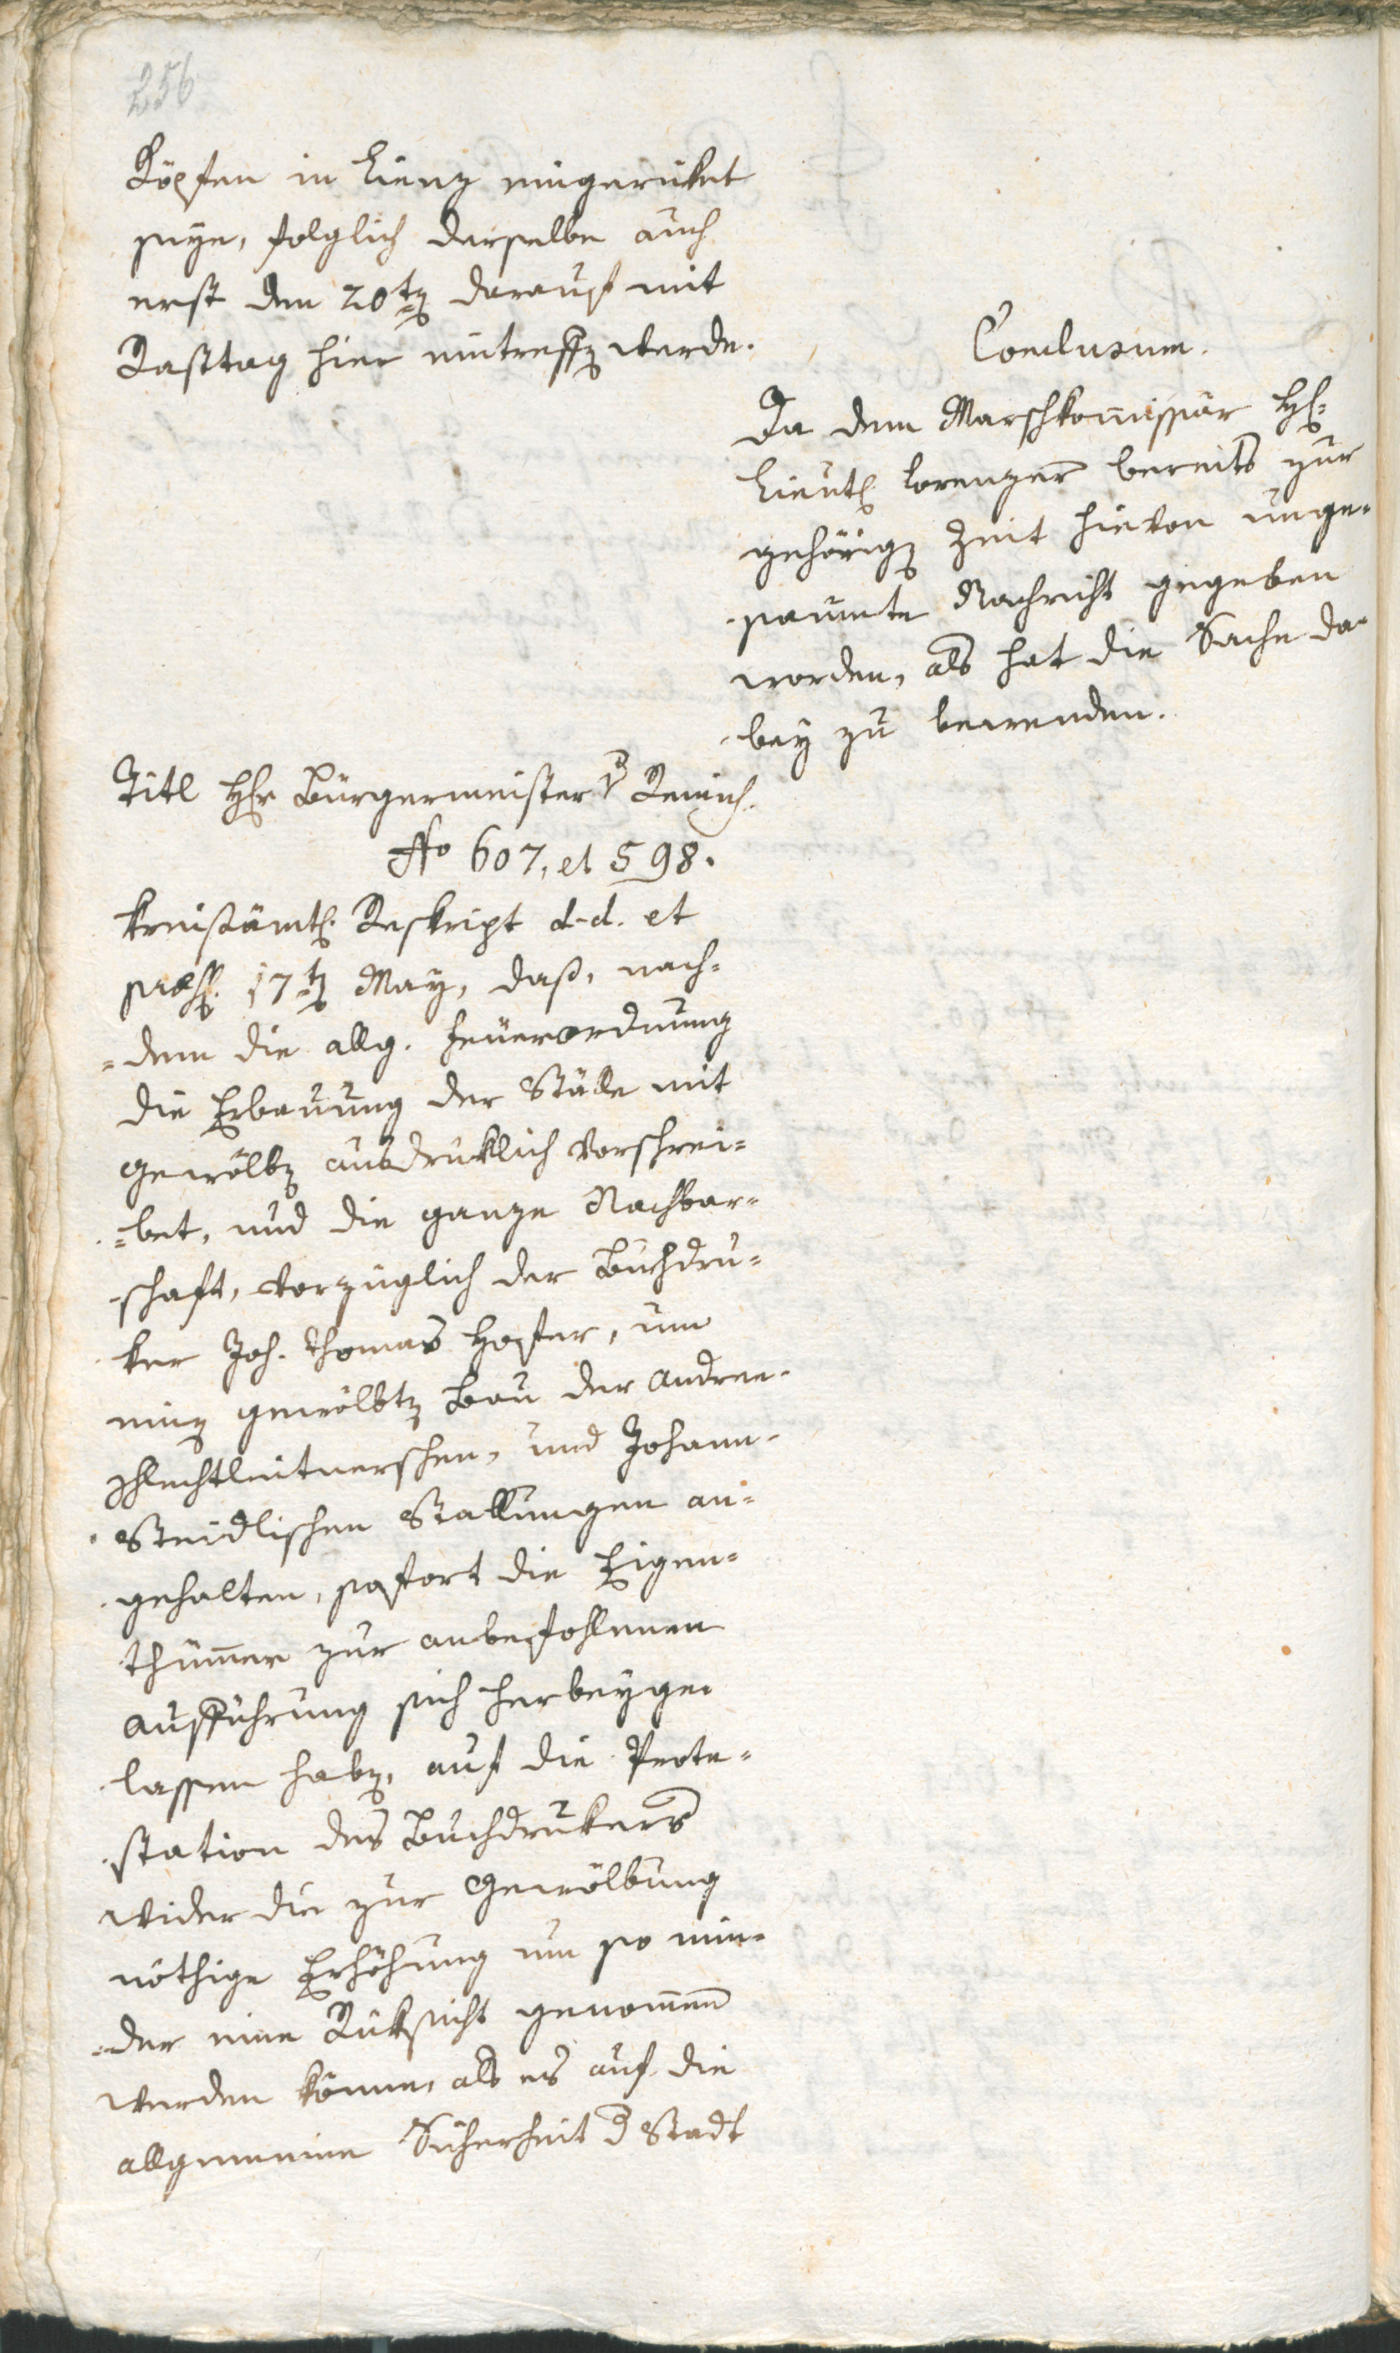 256
Köpfen in Lienz eingerüket
seye, folglich derselbe auch
erst den 20ten darauf mit
Rasttag hier eintreffen werde.
Conclusum.
Da dem Marschkom̄issär H:
Lieut. Lorenzer bereits zur
gehörigen Zeit hievon unge-
saumte Nachricht gegeben
worden, als hat die Sache da-
bey zu bewenden.
Titl Hr Bürgermeister
No 607, et 598.
Kreisämtl. Reskript d-d. et
præs. 17ten May, daß, nach-
dem die allg. Feuerordnung
die Erbauung der Ställe mit
Gewölben ausdruklich vorschrei-
bet, und die ganze Nachbar-
schaft, vorzüglich der Buchdru-
ker Joh. Thomas Hopfer, um
einen gewölbten Bau der Andree-
Schlechtleitnerschen, und Johann-
Steidlischen Stallungen an-
gehalten, sofort die Eigen-
thüm̄er zur anbefohlenen
Ausführung sich herbeyge-
lassen haben, auf die Prote-
station des Buchdrukers
wider die zur Gewölbung
nöthige Erhöhung um so min-
der eine Rüksicht genom̄en
werden könne, als es auf die
allgemeine Sicherheit d Stadt